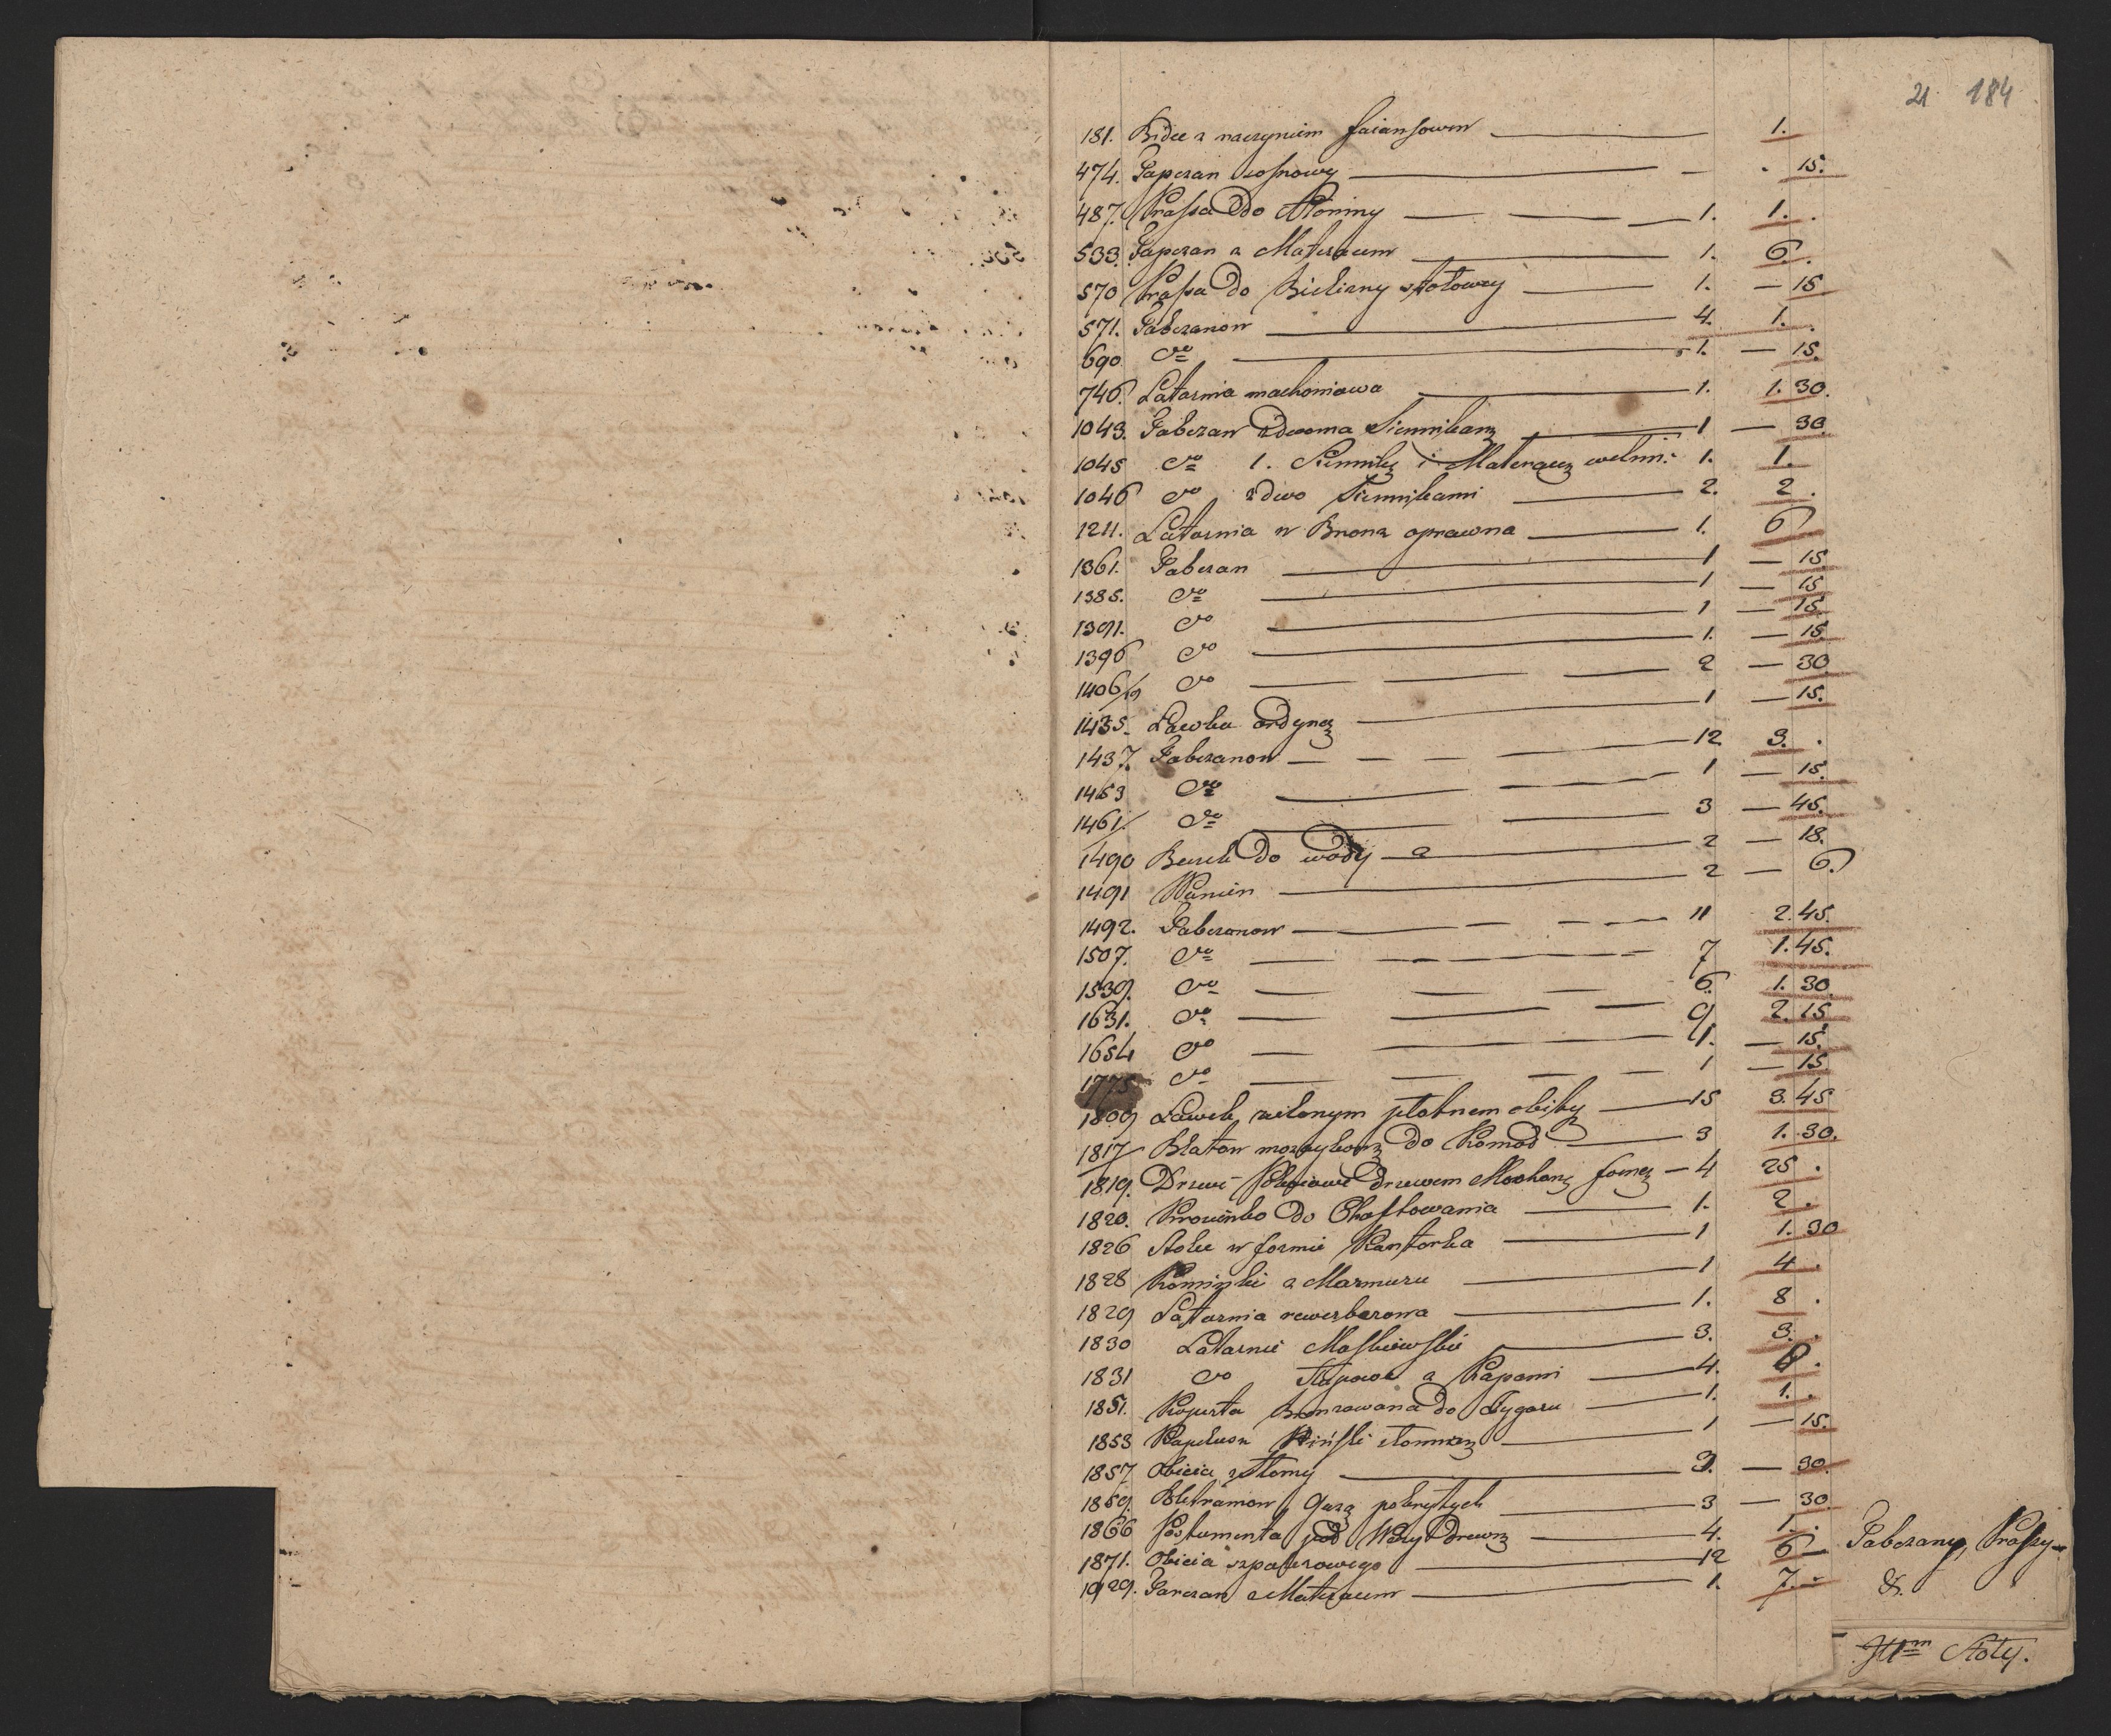 21 184
181. Bidee z naczyniem faiansowem — 1.
474. Tapczan sosnowy — . 15.
487. Prassa do — 1. 1. .
533. Tapczan z Materacem — 1. 6 .
570 Prassa do Bielizny stołowey — 1. — 15
571. Tabczanow — 4. 1. .
690. do — 1. — 15.
746. Latarnia machoniowa — 1. 1. 30.
1043. Tabczan z dwoma Siennikamj — 1 — 30.
1045 do 1. Siennikj i Materacz wełnn: 1. 1.
1046 do z dwo Siennikami — 2. 2 .
1211. Latarnia w Bronz oprawna — 1. 6
1361. Tabczan — 1 — 15.
1385. do — 1 — 15
1391. do — 1 — 15.
1396 do — 1. — 15.
1406/7 do — 2 — 30
1435. Ławka ordyn — 1 — 15.
1437. Tabczanow — 12 3. .
1453 do — 1 — 15.
1461. do — 3 — 45.
1490 Beczek do wody — 2 — 18.
1491 Wanien — 2 — 6.
1492. Tabczanow — 11 2. 45.
1507. do — 7 1. 45.
1539. do — 6. 1. 30.
1631. do — 9 2. 15
1654 do — 1. — 15.
1775 do — 1 — 15
1809 Ławek zielonym płotnem obity — 15 3. 45
1817 Blatow do Komod — 3 1. 30.
1819. Drzwi drzewem Machon forner — 4 25 .
1820. Krosienko do Chaftowania — 1. 2 .
1826 Stolec w formie Kantorka — 1 1. 30
1828 Kominki z Marmuru — 1 4 .
1829 Latarnia rewerberowa — 1. 8 .
1830 Latarnie Moskiewskie — 3. 3. .
1831 do z Kapami — 4. 8 .
1851. Koperta Bronzowana do Zygaru — 1. 1. .
1853 Kapelusz słomian — 1 — 15.
1857 Obicia z słomy — 3. — 30.
1859. Bletramow Gazą pokrytych — 3 — 30
1866 Postumenta pod Wazy drewn — 4. 1. .
1871. Obicia szpalerowego — 12 6 —
1929. Tarczan z Materacem — 1. 7. —
Tabczany, Prassy
&.
Stoły.